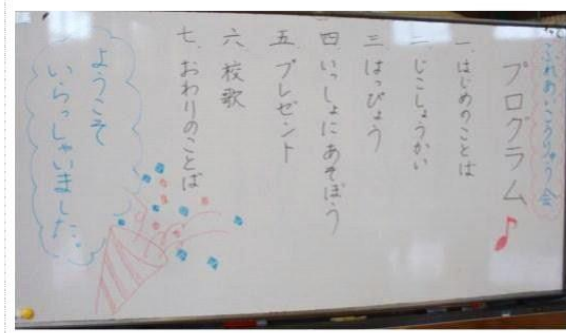 ふれあいこうりゅう会
プログラム
一、はじめのことば
二、じこしょうかい
三、はっぴょう
四、いっしょにあそぼう
五、プレゼント
六、校歌
七、おわりのことば
ようこそ
いらっしゃいました。